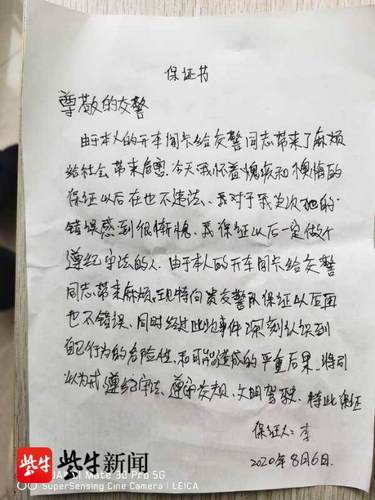 保证书
尊敬的交警
由于本人的开车闯卡给交警同志带来了麻烦
给社会带来危害、今天我怀着愧疚和懊悔的
保证以后在也不违法、我对于我这次犯的
错误感到很惭愧、我保证以后一定做个
遵纪守法的人、由于本人的开车闯卡给交警
同志带来麻烦、现特向贵交警队保证以后
也不错误、同时经过此次事件深刻认识到
自己行为的危险性、和可能造成的严重后果、将引
以为戒遵纪守法、遵守交规、文明驾驶、特此保证
保证人:李
2020年8月6日
紫牛 紫牛新闻
HUAWEI Mate 30 Pro 5G
SuperSensing Cine Camera | LEICA